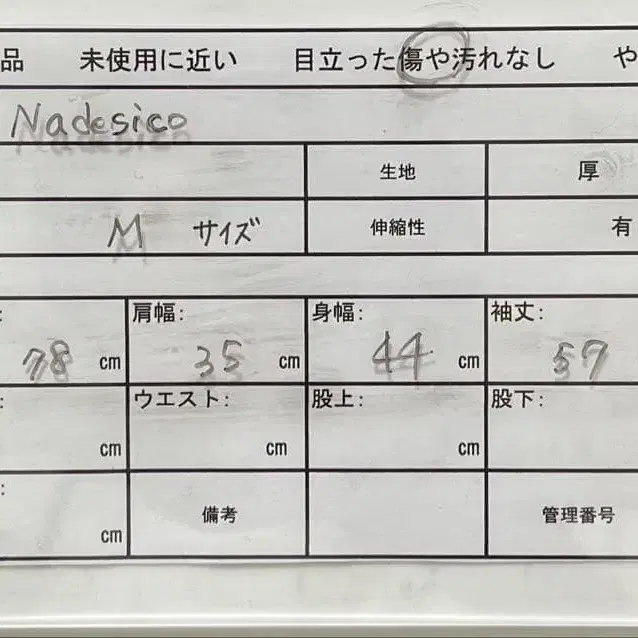 品 未使用に近い 目立った傷や汚れなし や
Nadesico
生地 厚
M サイズ 伸縮性 有
: 肩幅: 身幅: 袖丈:
78 cm 35 cm 44 cm 57
: ウエスト: 股上: 股下:
cm cm cm
: 備考 管理番号
cm